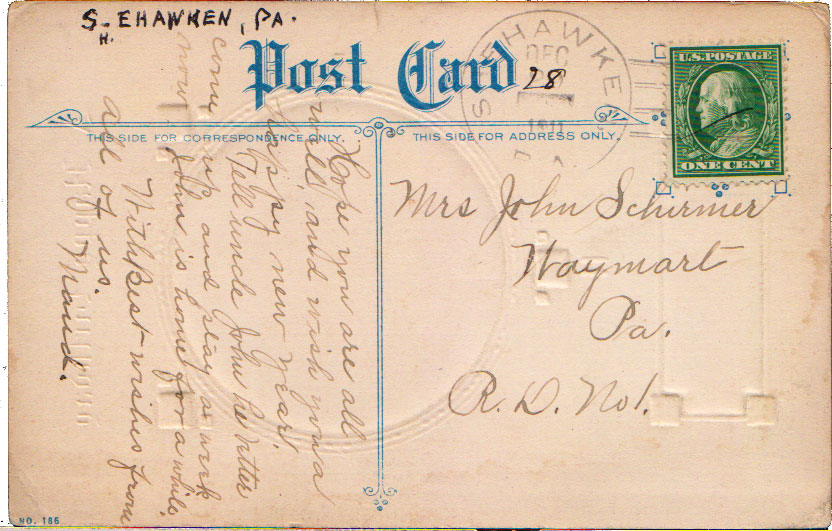 S. EHAWKEN, PA.
H.
Post Card
28
S EHAWKE
DEC
1911
U.S. POSTAGE
ONE CENT
THIS SIDE FOR CORRESPONDENCE ONLY.
THIS SIDE FOR ADDRESS ONLY.
Mrs John Schirmer
Waymart
Pa.
R. D. No 1.
Hope you are all
well, and wish you a
happy new year.
Tell uncle John he better
come up and stay a week
now John is home for a while.
With Best wishes from
all of us.
Maud.
NO. 186